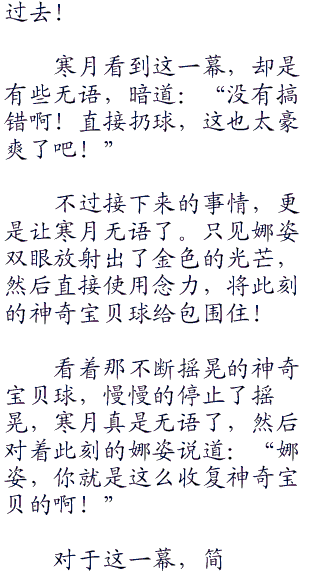 过去！
寒月看到这一幕，却是
有些无语，暗道：“没有搞
错啊！直接扔球，这也太豪
爽了吧！”
不过接下来的事情，更
是让寒月无语了。只见娜姿
双眼放射出了金色的光芒，
然后直接使用念力，将此刻
的神奇宝贝球给包围住！
看着那不断摇晃的神奇
宝贝球，慢慢的停止了摇
晃，寒月真是无语了，然后
对着此刻的娜姿说道：“娜
姿，你就是这么收复神奇宝
贝的啊！”
对于这一幕，简